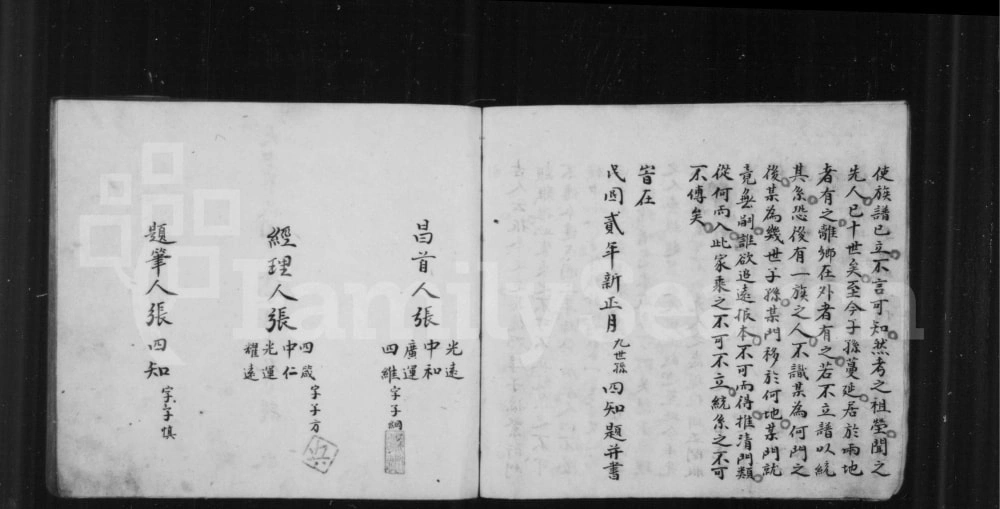 使族譜已立不言可知然考之祖塋聞之
先人已十世矣至今子孫蔓延居於兩地
者有之離鄉在外者有之若不立譜以統
其系恐後有一族之人不識某為何門之
後某為幾世子孫某門移於何地某門就
竟無嗣誰欲追遠报本不可而得推清門類
從何而入此家乘之不可不立統系之不可
不傳矣
旹在
民國貳年新正月 九世孫 四知題并書
昌首人張 光遠
中和
廣運
四維字子綱
經理人張 四箴字子方
中仁
光運
耀遠
題筆人張四知字子慎
FamilySearch